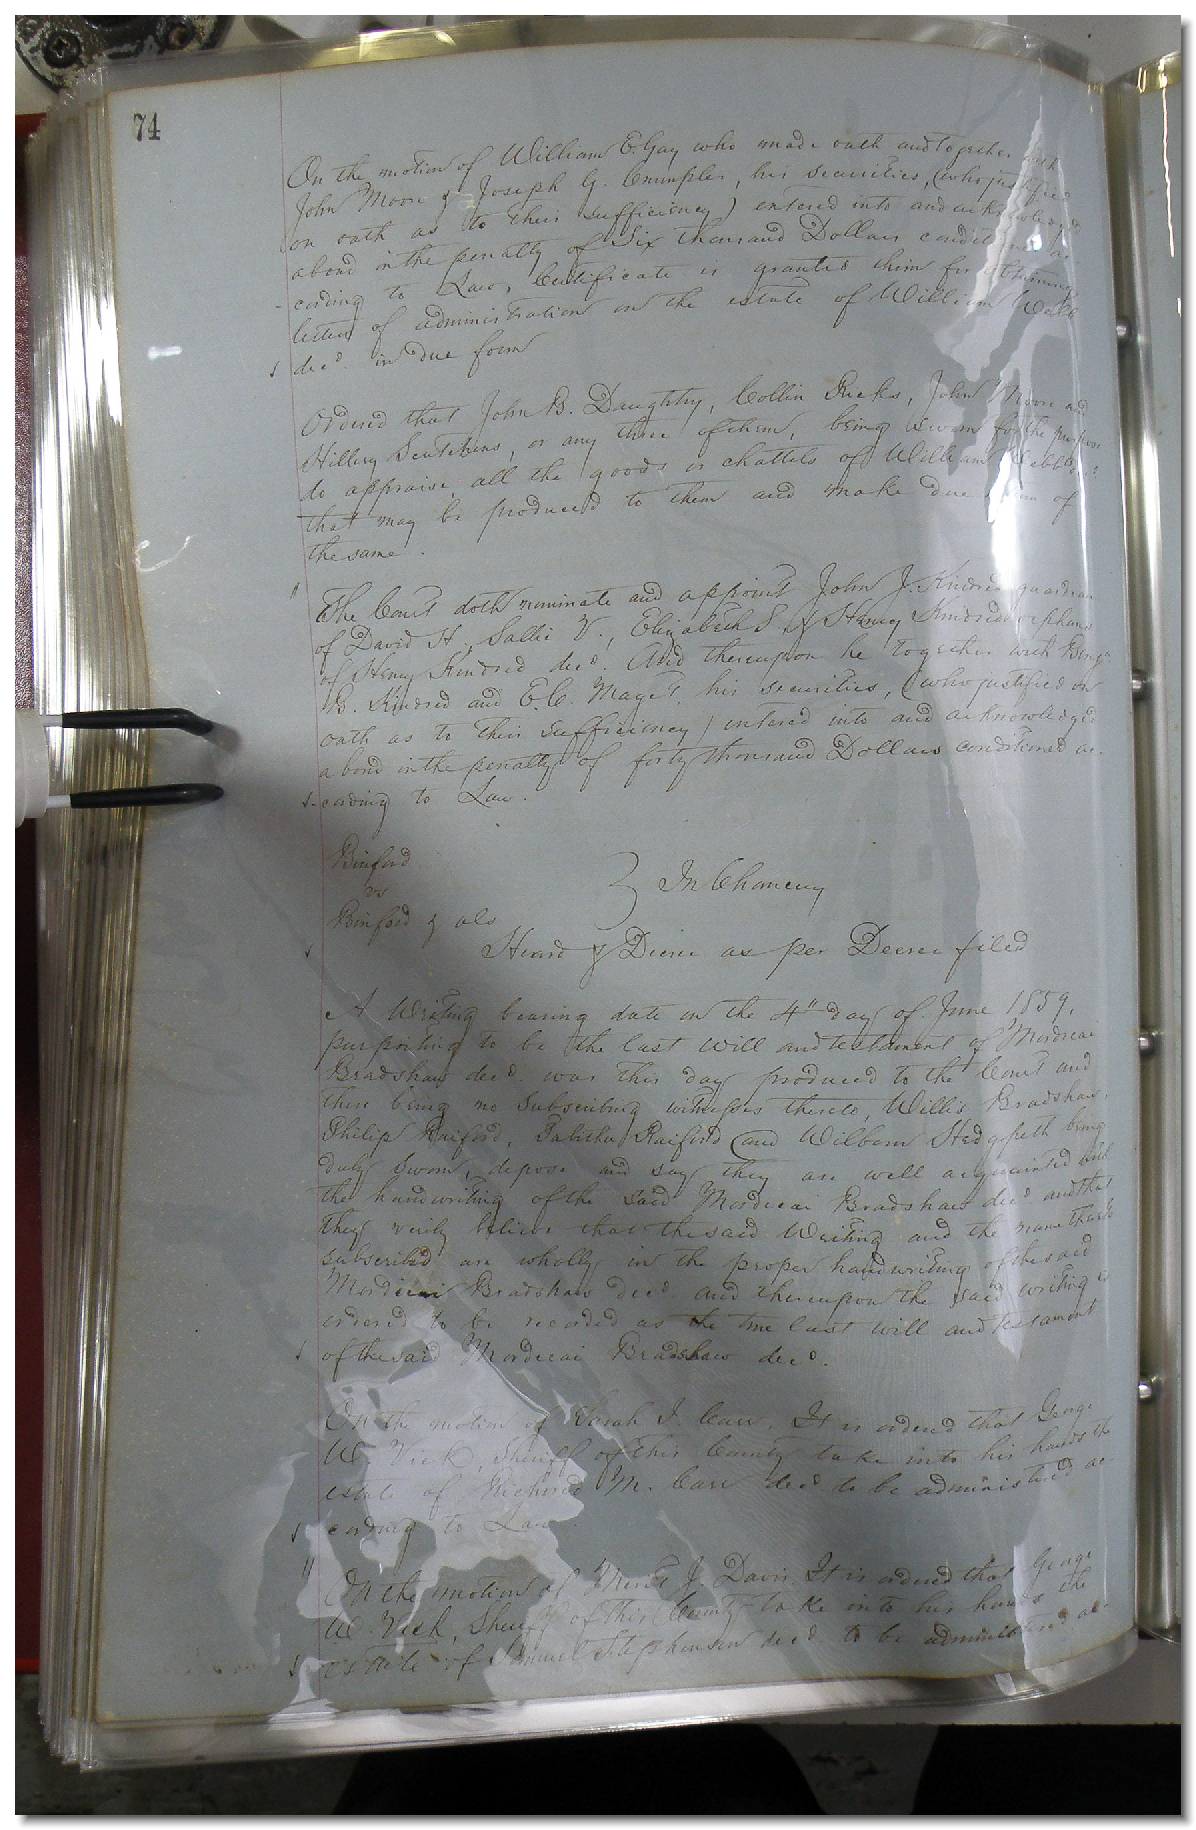 74
On the motion of William E. Gay who made oath and together with
John Moore & Joseph G. Crumpler, his securities, (who justified
on oath as to their sufficiency) entered into and acknowledged
a bond in the penalty of Six thousand Dollars conditioned ac
-cording to Law, Certificate is granted him for obtaining
letters of administration on the estate of William Webb
decd. in due form
Ordered that John B. Daughtry, Collin Ricks, John Moore and
Hillery Scutchins, or any three of them, being sworn for the purpose
do appraise all the goods & chattels of William Webb decd
that may be produced to them and make due return of
the same.
The Court doth nominate and appoint John J. Kindred guardian
of David H, Sallie V., Elizabeth S. & Henry Kindred orphans
of Henry Kindred decd. And thereupon he together with Benjn
B. Kindred and E. C. Maget his securities, (who justified on
oath as to their sufficiency) entered into and acknowledged
a bond in the penalty of forty thousand Dollars conditioned ac-
-cording to Law.
Binford
vs
Binford & als
In Chancery
Heard & Decree as per Decree filed
A Writing bearing date on the 4" day of June 1859,
purporting to be the last will and testament of Mordecai
Bradshaw decd. was this day produced to the Court and
there being no subscribing witnesses thereto, Willis Bradshaw,
Philip Raiford, Tabitha Raiford and Wilborn Hedgpeth being
duly sworn, depose and say they are well acquainted with
the handwriting of the said Mordecai Bradshaw decd and that
they verily believe that the said Writing and the name thereto
subscribed are wholly in the proper handwriting of the said
Mordecai Bradshaw decd. and thereupon the said writing is
ordered to be recorded as the true last will and testament
of the said Mordecai Bradshaw decd.
On the motion of Sarah I. Carr, It is ordered that George
W. Vick, Sheriff of this County take into his hands the
estate of Richard M. Carr decd to be administered ac-
cording to Law.
On the motion of J. Davis It is ordered that George
W. Vick, Sheriff of this County take into his hands the
estate of Samuel Stephenson decd to be administered ac-